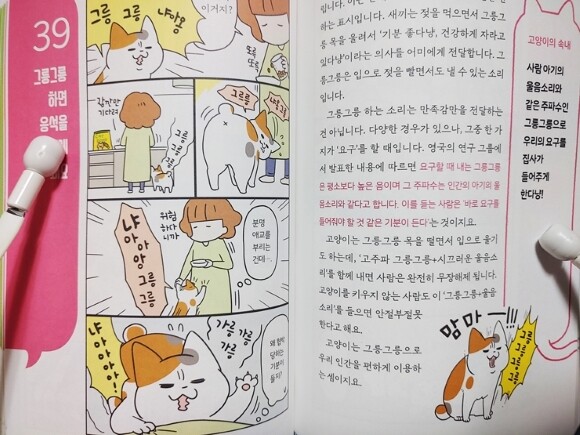 39
그릉그릉
하면
응석을
그릉
그릉
냐앙옹
이거지?
또록
또록
잠깐만
기다려
그릉그릉
그르릉
냐앙
냐
아
아
앙
그릉
그릉
위험
하다
니까
분명
애교를
부리는
건데…
냐
아
아
아
앙!
가릉
가릉
가릉
왜 협박
당하는
기분이
들지?
하는 표시입니다. 새끼는 젖을 먹으면서 그릉그
릉 목을 울려서 '기분 좋다냥, 건강하게 자라고
있다냥'이라는 의사를 어미에게 전달합니다. 그
릉그릉은 입으로 젖을 빨면서도 낼 수 있는 소리
입니다.
그릉그릉 하는 소리는 만족감만을 전달하는
건 아닙니다. 다양한 경우가 있으나, 그중 한 가
지가 '요구'를 할 때입니다. 영국의 연구 그룹에
서 발표한 내용에 따르면 요구할 때 내는 그릉그릉
은 평소보다 높은 음이며 그 주파수는 인간의 아기의 울
음소리와 같다고 합니다. 이를 듣는 사람은 '바로 요구를
들어줘야 할 것 같은 기분이 든다'는 것이지요.
고양이는 그릉그릉 목을 떨면서 입으로 울기
도 하는데, '고주파 그릉그릉+시끄러운 울음소
리'를 함께 내면 사람은 완전히 무장해제 됩니다.
고양이를 키우지 않는 사람도 이 '그릉그릉+울음
소리'를 들으면 안절부절못
한다고 해요.
고양이는 그릉그릉으로
우리 인간을 편하게 이용하
는 셈이지요.
고양이의 속내
사람 아기의
울음소리와
같은 주파수인
그릉그릉으로
우리의 요구를
집사가
들어주게
한다냥!
맘마—!!!
그릉
그릉
그릉